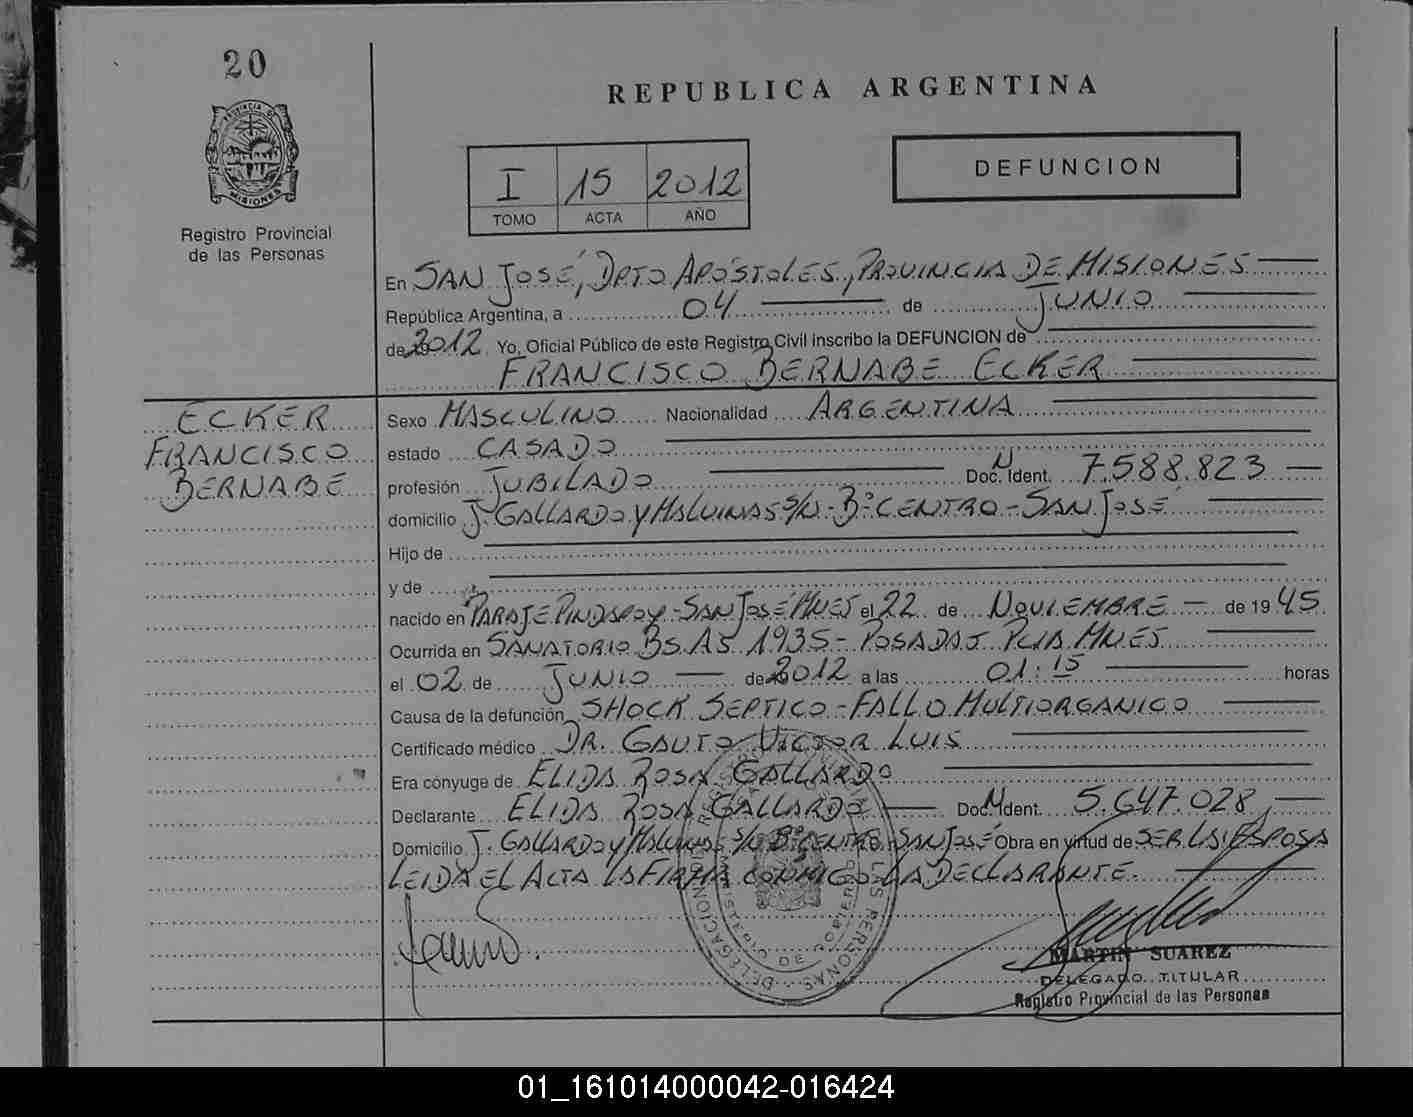 20
REPUBLICA ARGENTINA
PROVINCIA DE
MISIONES
Registro Provincial
de las Personas
I 15 2012
TOMO ACTA AÑO
DEFUNCION
En SAN JOSÉ, DPTO APÓSTOLES, PROVINCIA DE MISIONES
República Argentina, a 04 de JUNIO
de 2012 Yo, Oficial Público de este Registro Civil inscribo la DEFUNCION de
FRANCISCO BERNABE ECKER
ECKER
FRANCISCO
BERNABE
Sexo MASCULINO Nacionalidad ARGENTINA
estado CASADO
profesión JUBILADO Doc. N Ident. 7.588.823
domicilio J. GALLARDO Y MALVINAS S/N - B° CENTRO - SAN JOSÉ
Hijo de
y de
nacido en PARAJE PINDAPOY - SAN JOSÉ MNES el 22 de NOVIEMBRE de 1945
Ocurrida en SANATORIO BS AS 1935 - POSADAS PCIA MNES
el 02 de JUNIO de 2012 a las 01:15 horas
Causa de la defunción SHOCK SEPTICO - FALLO MULTIORGANICO
Certificado médico DR. GAUTO VICTOR LUIS
Era cónyuge de ELIDA ROSA GALLARDO
Declarante ELIDA ROSA GALLARDO Doc. N Ident. 5.647.028,
Domicilio J. GALLARDO Y MALVINAS S/N B° CENTRO SAN JOSÉ Obra en virtud de SER LA ESPOSA
LEIDA EL ACTA LA FIRMA CONMIGO LA DECLARANTE.
MARTIN SUAREZ
DELEGADO TITULAR
Registro Provincial de las Personas
01_161014000042-016424